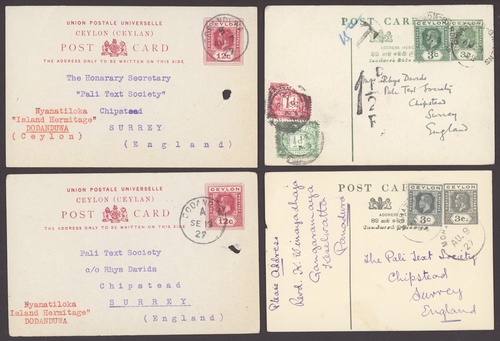 UNION POSTALE UNIVERSELLE
CEYLON (CEYLAN)
POST CARD
THE ADDRESS ONLY TO BE WRITTEN ON THIS SIDE.
CEYLON
12c
The Honarary Secretary
"Pali Text Society"
Chipstead
SURREY
(England)
Nyanatiloka
"Island Hermitage"
DODANDUWA
(Ceylon)
POST CARD
ADDRESS HERE
CEYLON
3c
3c
Rhys Davids
Pali Text Society
Chipstead
Surrey
England
UNION POSTALE UNIVERSELLE
CEYLON (CEYLAN)
POST CARD
THE ADDRESS ONLY TO BE WRITTEN ON THIS SIDE.
CEYLON
12c
DODANDUWA
A
SE 13
27
Pali Text Society
c/o Rhys Davids
Chipstead
SURREY
(England)
Nyanatiloka
"Island Hermitage"
DODANDUWA
POST CARD
ADDRESS HERE
CEYLON
CEYLON
3c
3c
AU 9
27
The Pali Text Society
Chipstead
Surrey
England
Please Address
Gangaramaya
Panadura